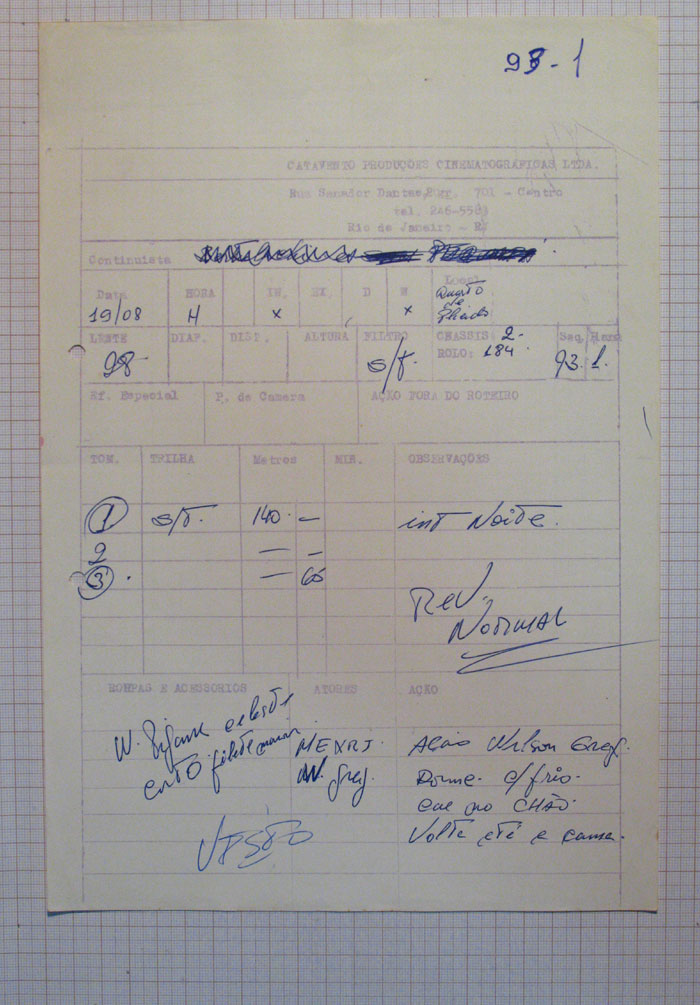 93-1
CATAVENTO PRODUÇÕES CINEMATOGRÁFICAS LTDA.
Rua Senador Dantas, 701 - Centro
tel. 246-
Rio de Janeiro - RJ
Continuista
Data HORA IN. EX. D N Local
19/08 H x x Quarto de
LENTE DIAF. DIST. ALTURA FILTRO CHASSIS: 2- Seq. Num
98 s/f. ROLO: 184 93. 1.
Ef. Especial P. de Camera AÇÃO FORA DO ROTEIRO
TOM. TRILHA Metros MIN. OBSERVAÇÕES
1 s/T. 140 - int Noite.
2 - -
3. - 60
Rev.
Normal
ROUPAS E ACESSORIOS ATORES AÇÃO
W.
curto
MENRJ. Wilson Grey.
W. Grey. Dorme. c/frio.
cae no CHÃO.
Volta até a cama.
VISTO